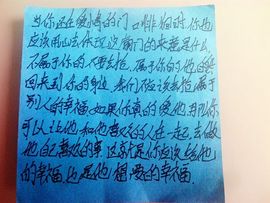 当你还在爱情的门口徘徊时你也
应该用心去体现这扇门的来意是什么
不属于你的不要去抢。属于你的他总会
回来到你的身边 我们不应该去抢属于
别人的幸福。如果你真的爱他那你
可以让他和他喜欢的人在一起。去做
他自己喜欢的事 这就是你应该给他
的幸福,也是他想要的幸福.